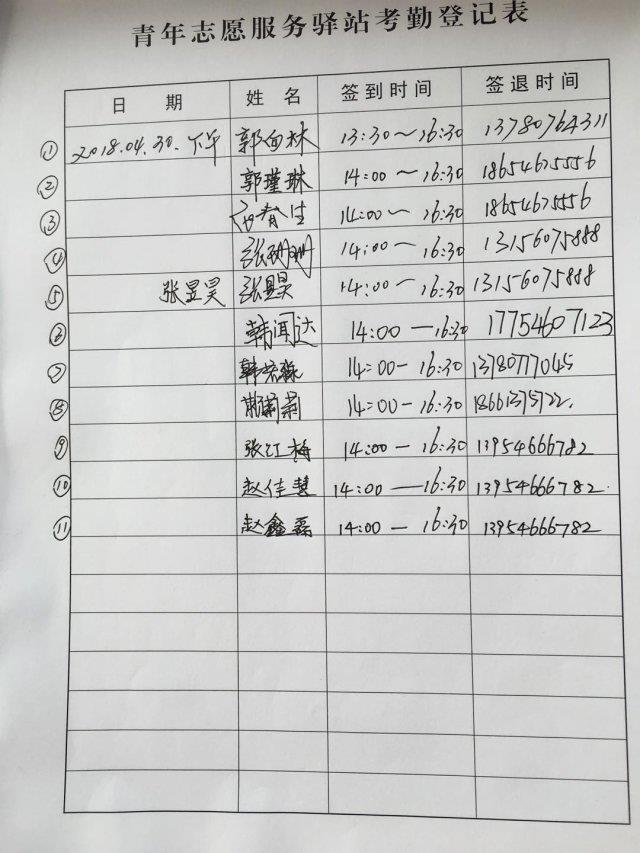 青年志愿服务驿站考勤登记表
日 期 姓 名 签到时间 签退时间
① 2018.04.30.下午 郭向林 13:30～16:30 13780764311
② 郭瑾琳 14:00～16:30 18654675556
③ 春生 14:00～16:30 18654675556
④ 张珊珊 14:00～16:30 13156075888
⑤ 张昱昊 张昱昊 14:00～16:30 13156075888
⑥ 韩闻达 14:00—16:30 17754607123
⑦ 韩 14:00-16:30 13780777045
⑧ 14:00-16:30 18661375722.
⑨ 张江梅 14:00-16:30 13954666782
⑩ 赵佳慧 14:00—16:30 13954666782.
⑪ 赵鑫磊 14:00-16:30 13954666782